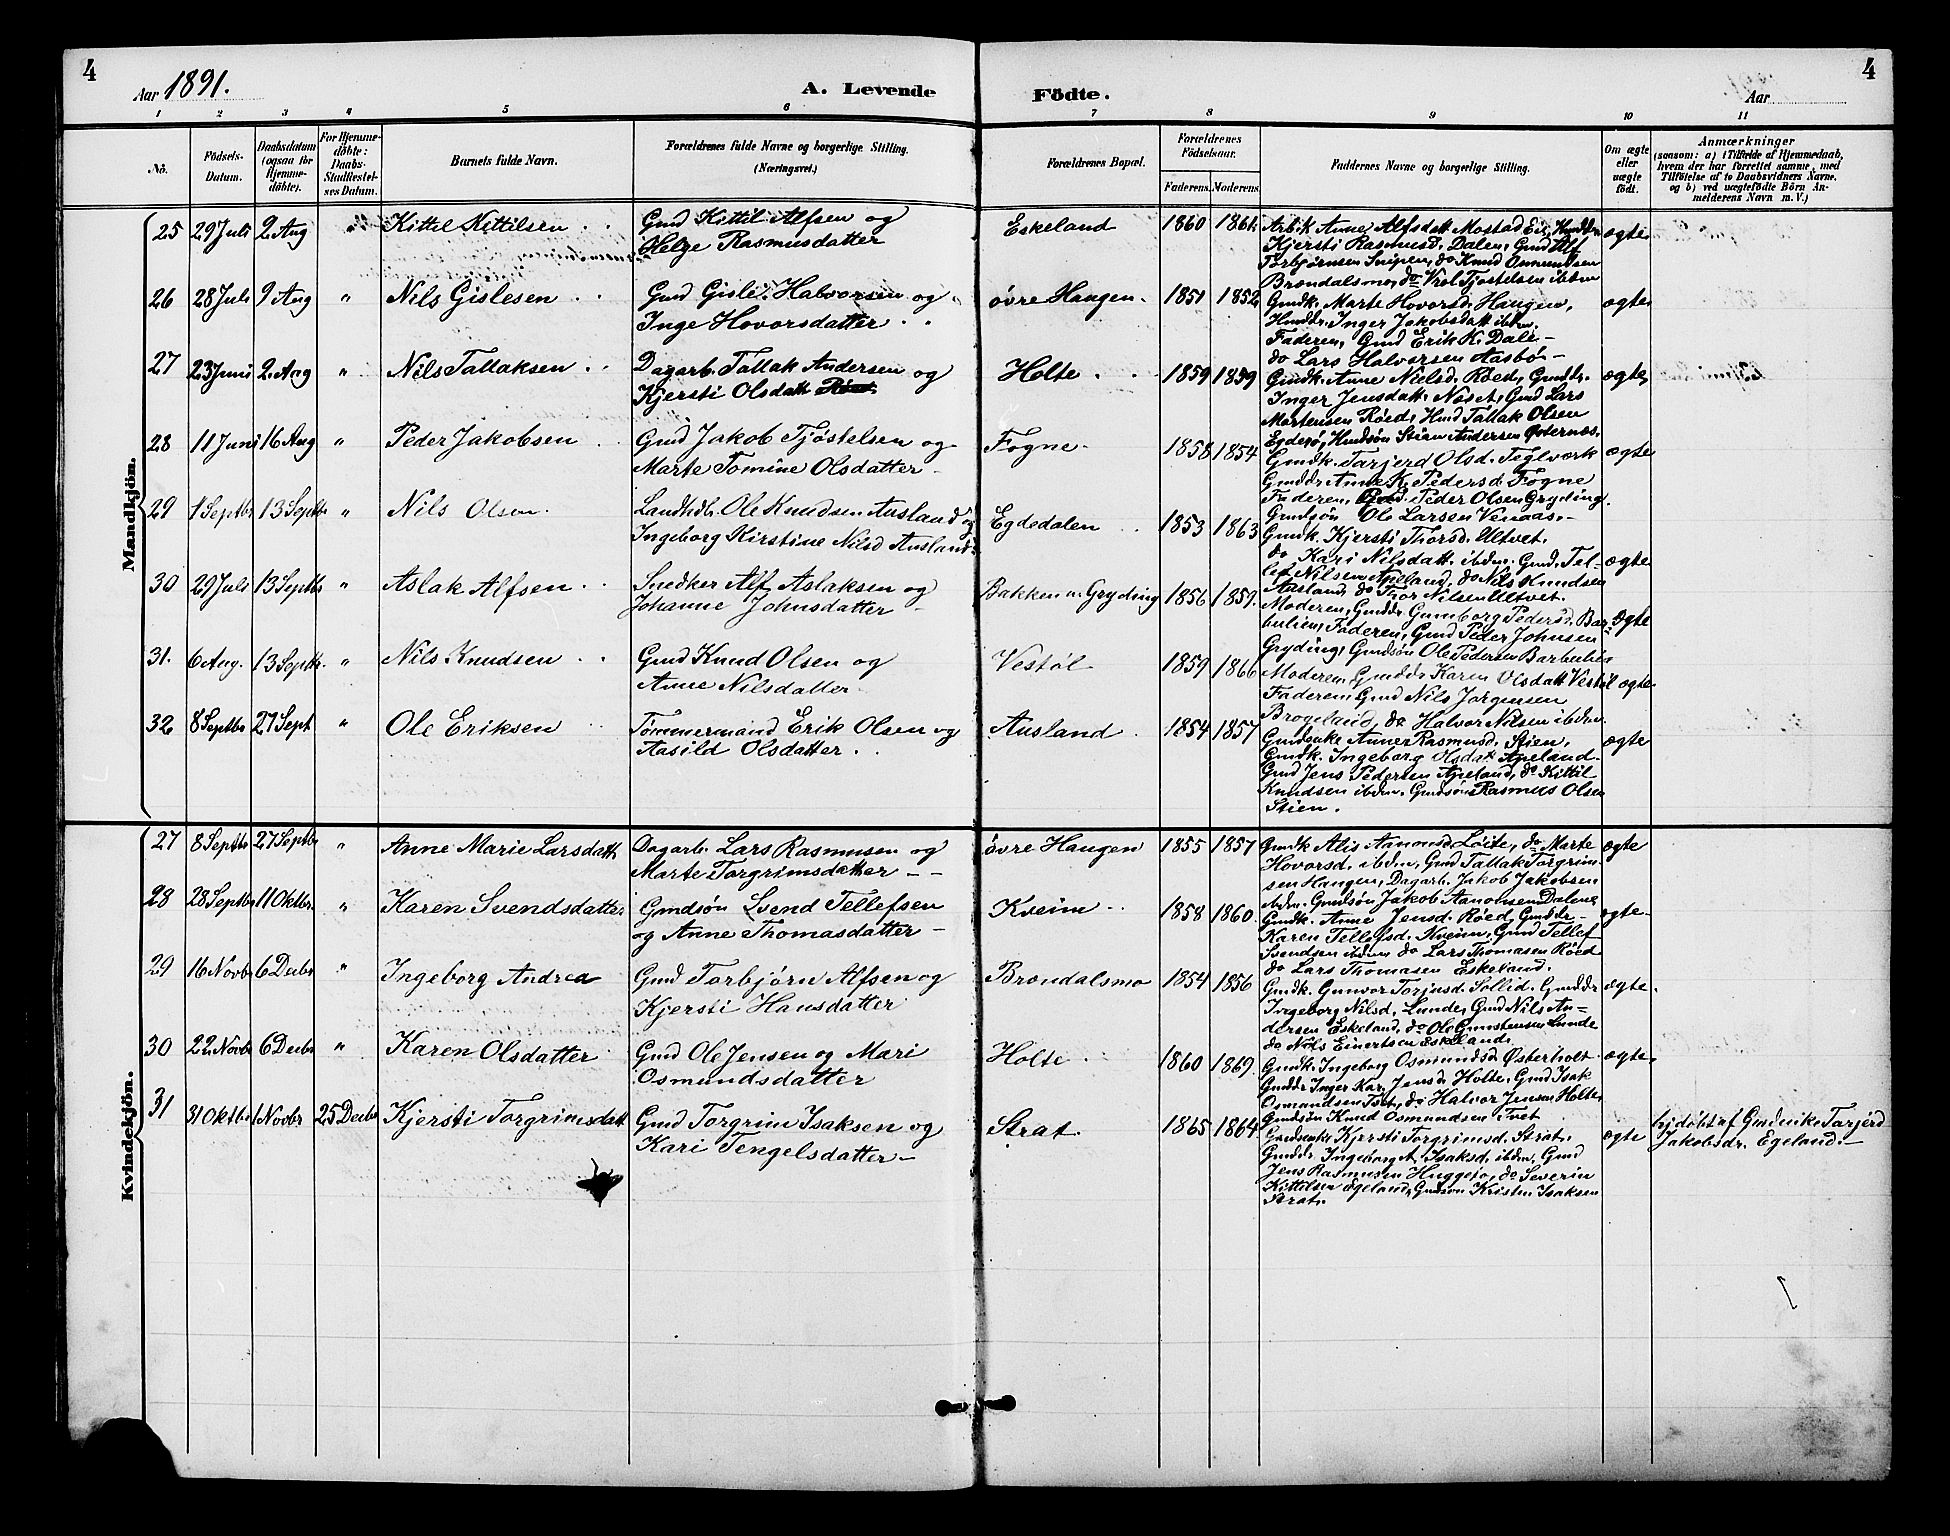 4
Aar 1891.
A. Levende
Födte.
Aar
4
1 2 3 4 5 6 7 8 9 10 11
No.
Födsels-Datum.
Daabsdatum (ogsaa for Hjemmedöbte).
For Hjemmedöbte: Daabs-Stadfæstelses Datum.
Barnets fulde Navn.
Forældrenes fulde Navne og borgerlige Stilling. (Næringsvei.)
Forældrenes Bopæl.
Forældrenes Födselsaar.
Faderens. Moderens.
Faddernes Navne og borgerlige Stilling.
Om ægte eller uægte födt.
Anmærkninger
(saasom: a) i Tilfælde af Hjemmedaab,
hvem der har forrettet samme, med
Tilföielse af to Daabsvidners Navne,
og b) ved uægtefödte Börn An-
melderens Navn m. V.)
Mandkjön.
25 29 Juli 2 Aug " Kittil Kittilsen
Gmd Kittil Alfsen og
Helge Rasmusdatter
Eskeland 1860 1861
Arbk Anne Alfsdatt Mostad
Kjersti Rasmusd. Dalen, Gmd Alf
Torbjørnsen Snipen, do Knud Osmundsen
Brøndalsmo, do Vrol Tjostelsen ibidem
ægte
26 28 Juli 9 Aug " Nils Gislesen
Gmd Gisle Halvorsen og
Inge Hovorsdatter
övre Haugen 1851 1852
Gmdk. Marte Hovorsd. Haugen,
Huuddr. Inger Jakobsdatt ibdm.
Faderen, Gmd Erik K. Dale
do Lars Halvorsen Aasbö
ægte
27 23 Juni 2 Aug " Nils Tallaksen
Dagarb. Tallak Andersen og
Kjersti Olsdatt
Holte 1859 1859
Gmdk. Anne Nielsd. Röed, Gmddr.
Inger Jensdatt. Næset, Gmd Lars
Mortensen Röed, Hmd Tallak Olsen
Egderö, Hmdsön Stian Andersen Østernæs.
ægte
28 11 Juni 16 Aug " Peder Jakobsen
Gmd Jakob Tjöstelsen og
Marte Tomine Olsdatter
Fogne 1858 1854
Gmdk. Tarjerd Olsd. Teglværk
Gmddr Anne K. Pedersd. Fogne
Faderen, Peder Olsen Gryding.
Gmdsön Ole Larsen Venaas.
ægte
29 1 Septbr 13 Septbr " Nils Olsen
Landhdl. Ole Knudsen Ausland og
Ingeborg Kirstine Nilsd Ausland
Egdedalen 1853 1863
Gmdk. Kjersti Thorsd. Ultvet.
do Kari Nilsdatt. ibdm. Gmd. Tel-
lef Nilsen Apeland, do Nils Knudsen
Ausland, do Thor Nilsen Ultvet.
ægte
30 29 Juli 13 Septbr " Aslak Alfsen
Snedker Alf Aslaksen og
Johanne Johnsdatter
Bakken u. Gryding 1856 1859.
Moderen, Gmddr Gunborg Pedersd. Bar-
bulien, Faderen, Gmd Peder Johnsen
Gryding, Gmdsön Ole Pedersen Barbulien
ægte
31. 6 Aug. 13 Septbr. " Nils Knudsen
Gmd Knud Olsen og
Anne Nilsdatter
Vestöl 1859 1866
Moderen, Gmddr. Karen Olsdatt Vestöl
Faderen, Gmd Nils Jorgensen
Brogeland, do Halvor Nilsen ibdm.
ægte
32 8 Septbr 27 Sept " Ole Eriksen
Tømmermand Erik Olsen og
Aasild Olsdatter
Ausland 1854 1857
Gmdenke Anne Rasmusd. Stien,
Gmdk. Ingeborg Olsdat Apeland
Gmd Jens Pedersen Apeland, do Kittil
Knudsen ibdm. Gmdsön Rasmus Olsen
Stien.
ægte
Kvindekjön.
27 8 Septbr 27 Septbr " Anne Marie Larsdatt
Dagarb. Lars Rasmusen og
Marte Torgrimsdatter
övre Haugen 1855 1857
Gmdk Alis Aanonsd. Löite, do Marte
Hovorsd. ibdm, Gmd Tallak Torgrim-
sen Haugen, Dagarb. Jakob Jakobsen
ibdm. Gmdsön Jakob Aanonsen Dalene
ægte
28 28 Septbr 11 Oktbr. " Karen Svendsdatter
Gmdsön Svend Tellefsen
og Anne Thomasdatter
Kveim 1858 1860.
Gmdk. Anne Jensd. Röed, Gmddr
Karen Tellefsd. Kveim, Gmd Tellef
Svendsen ibdm do Lars Thomasen Röed
do Lars Thomasen Eskeland.
ægte
29 16 Novbr 6 Decbr " Ingeborg Andrea
Gmd Torbjörn Alfsen og
Kjersti Hansdatter
Brøndalsmo 1854 1856
Gmdk. Gunvor Torjusd. Sollid, Gmddr
Ingeborg Nilsd. Lunde, Gmd Nils An-
dersen Eskeland, do Ole Gunstensen Lunde
do Nils Einertsen Eskeland.
ægte.
30 22 Novbr 6 Decbr " Karen Olsdatter
Gmd Ole Jensen og Mari
Osmundsdatter
Holte 1860 1869.
Gmdk. Ingeborg Osmundsd Østerholt
Gmddr Inger Kar. Jensd. Holte, Gmd Isak
Osmundsen Tvet, do Halvor Jensen Holte,
Gmdsön Knud Osmundsen Tvet
ægte.
31 31 Oktbr 1 Novbr 25 Decbr Kjersti Torgrimsdatt
Gmd Torgrim Isaksen og
Kari Tengelsdatter
Strat 1865 1864
Gmdenke Kjersti Torgrimsd. Strat.
Gmddr. Ingeborg A. Isaksd. ibdm, Gmd
Jens Rasmusen Huggejo, do Severin
Kittilsen Egeland, Gmdsön Kristen Isaksen
Strat.
ægte
hjdöbt af Gmdenke Tarjerd
Jakobsdr. Egeland.